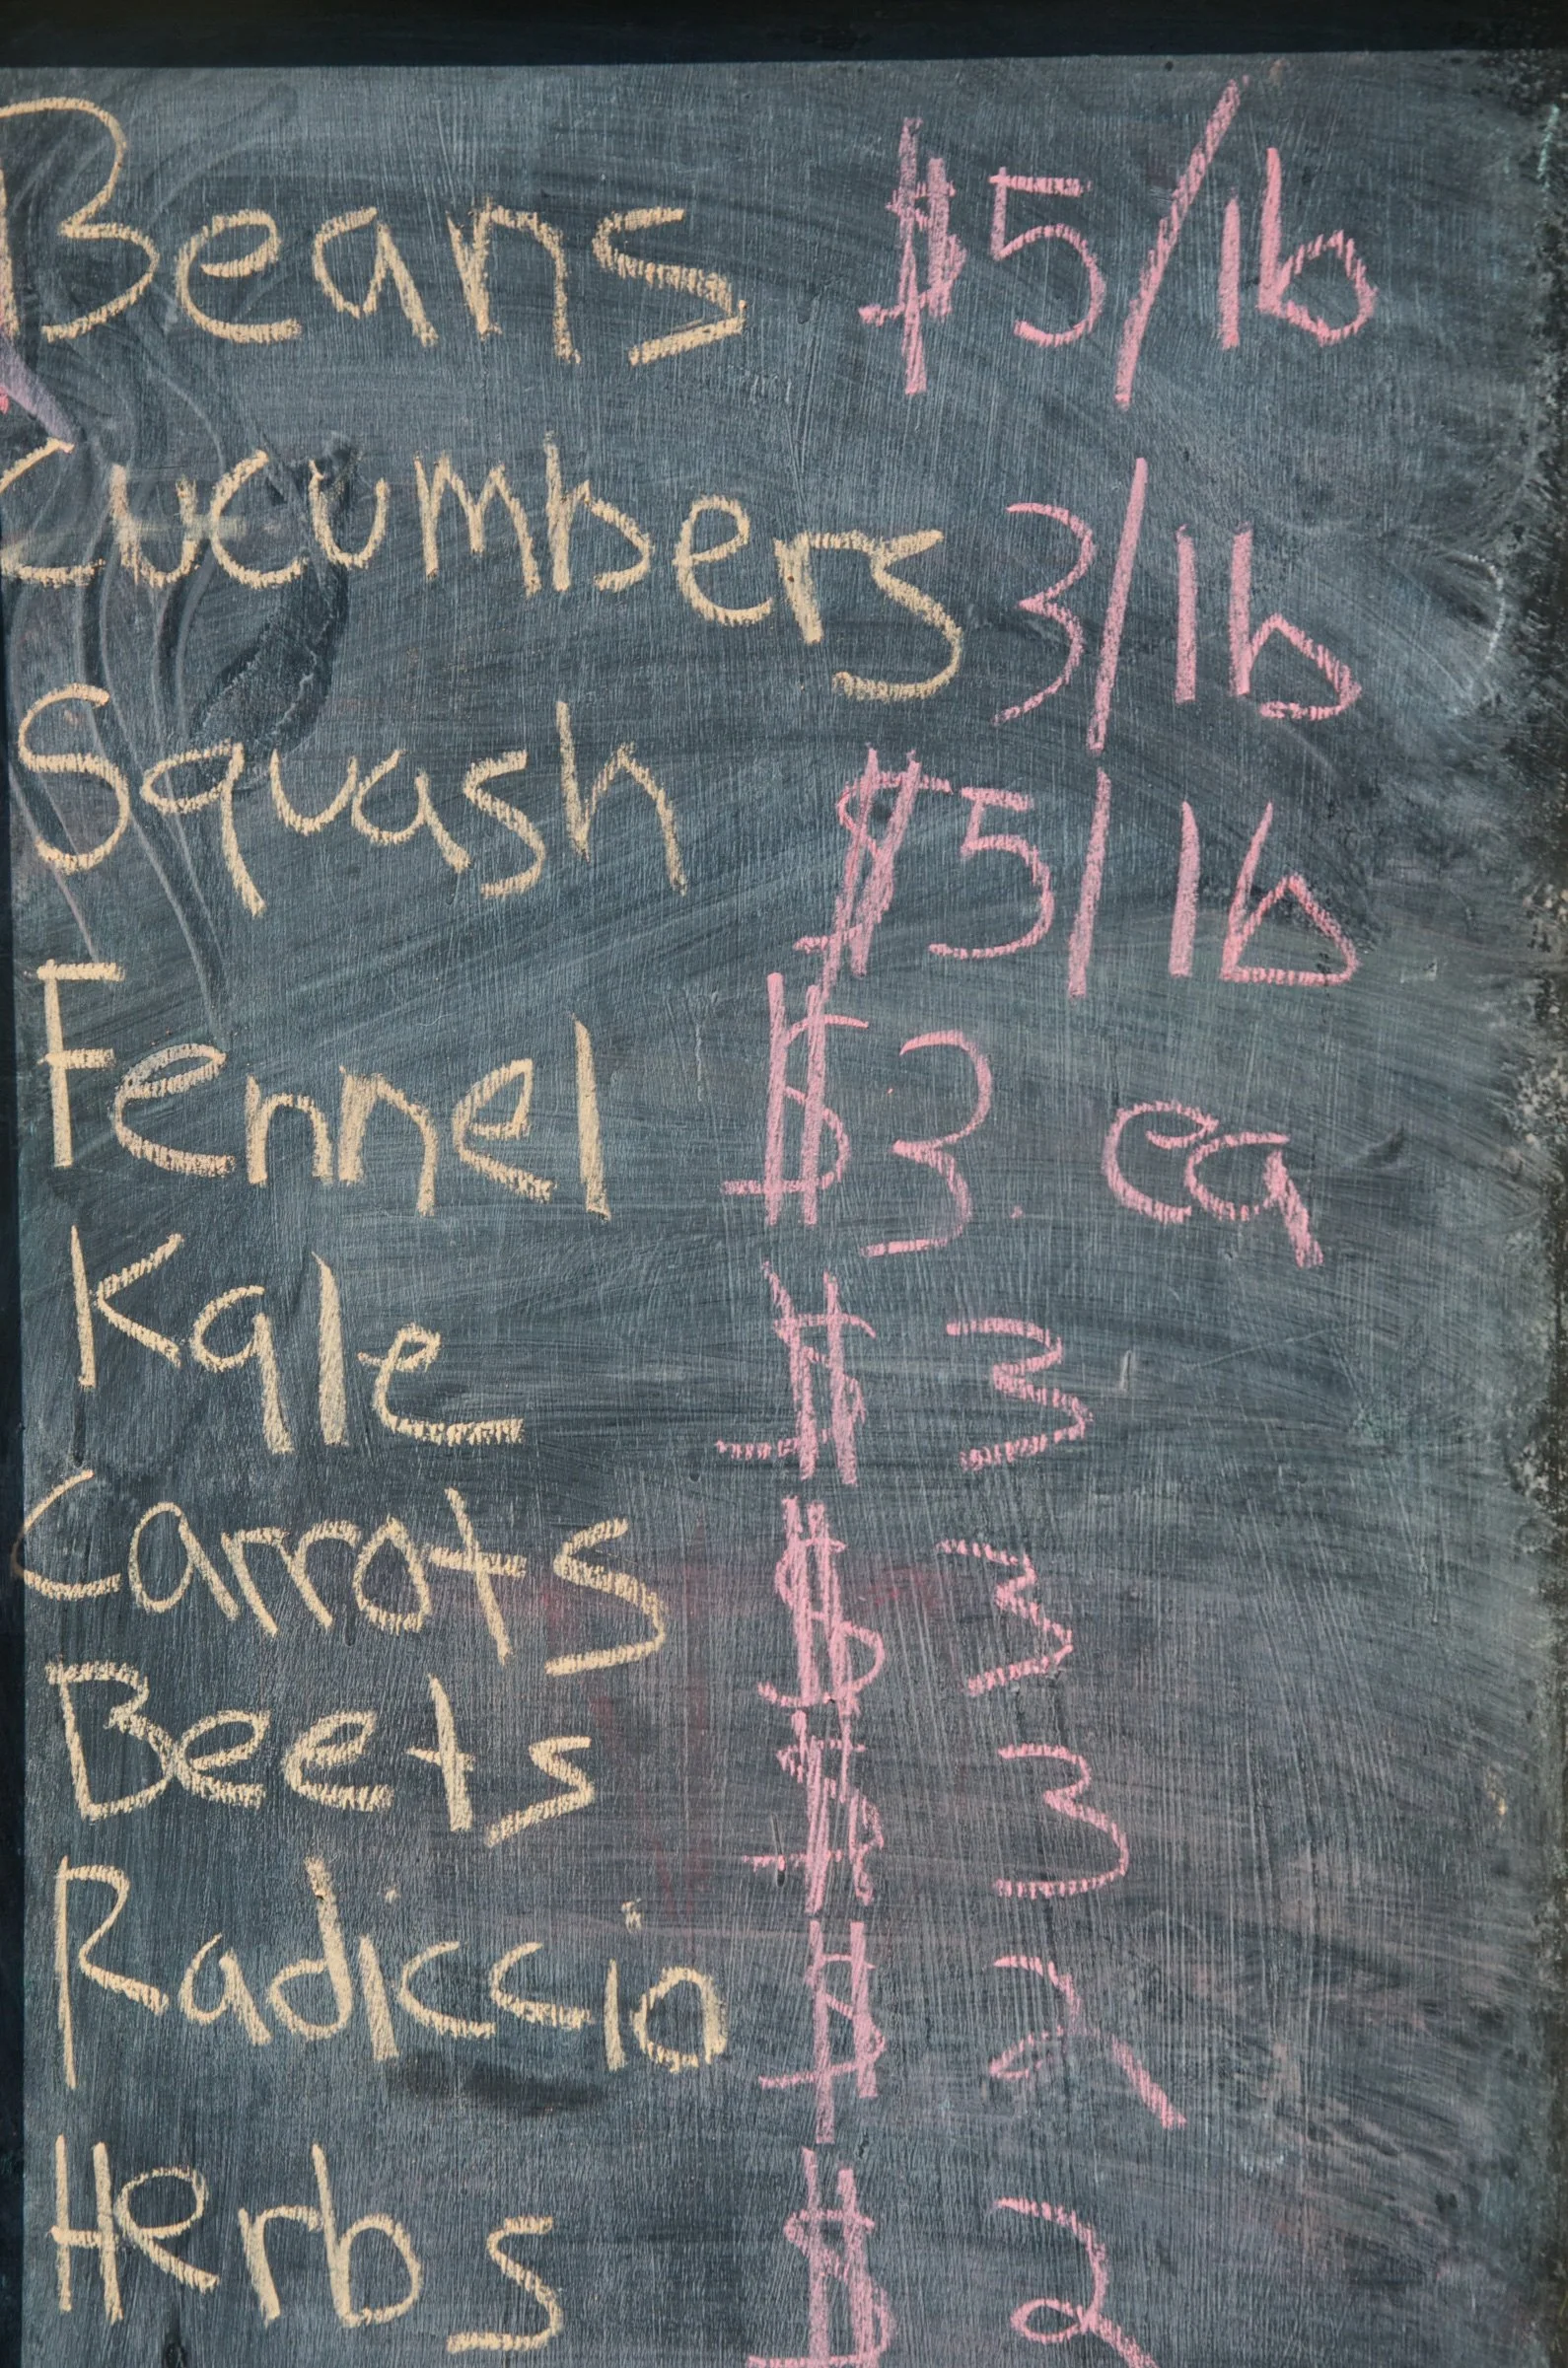 Beans $5/lb
Cucumbers 3/lb
Squash $5/lb
Fennel $3. ea
Kale $3
Carrots $3
Beets $3
Radiccio $2
Herbs $2